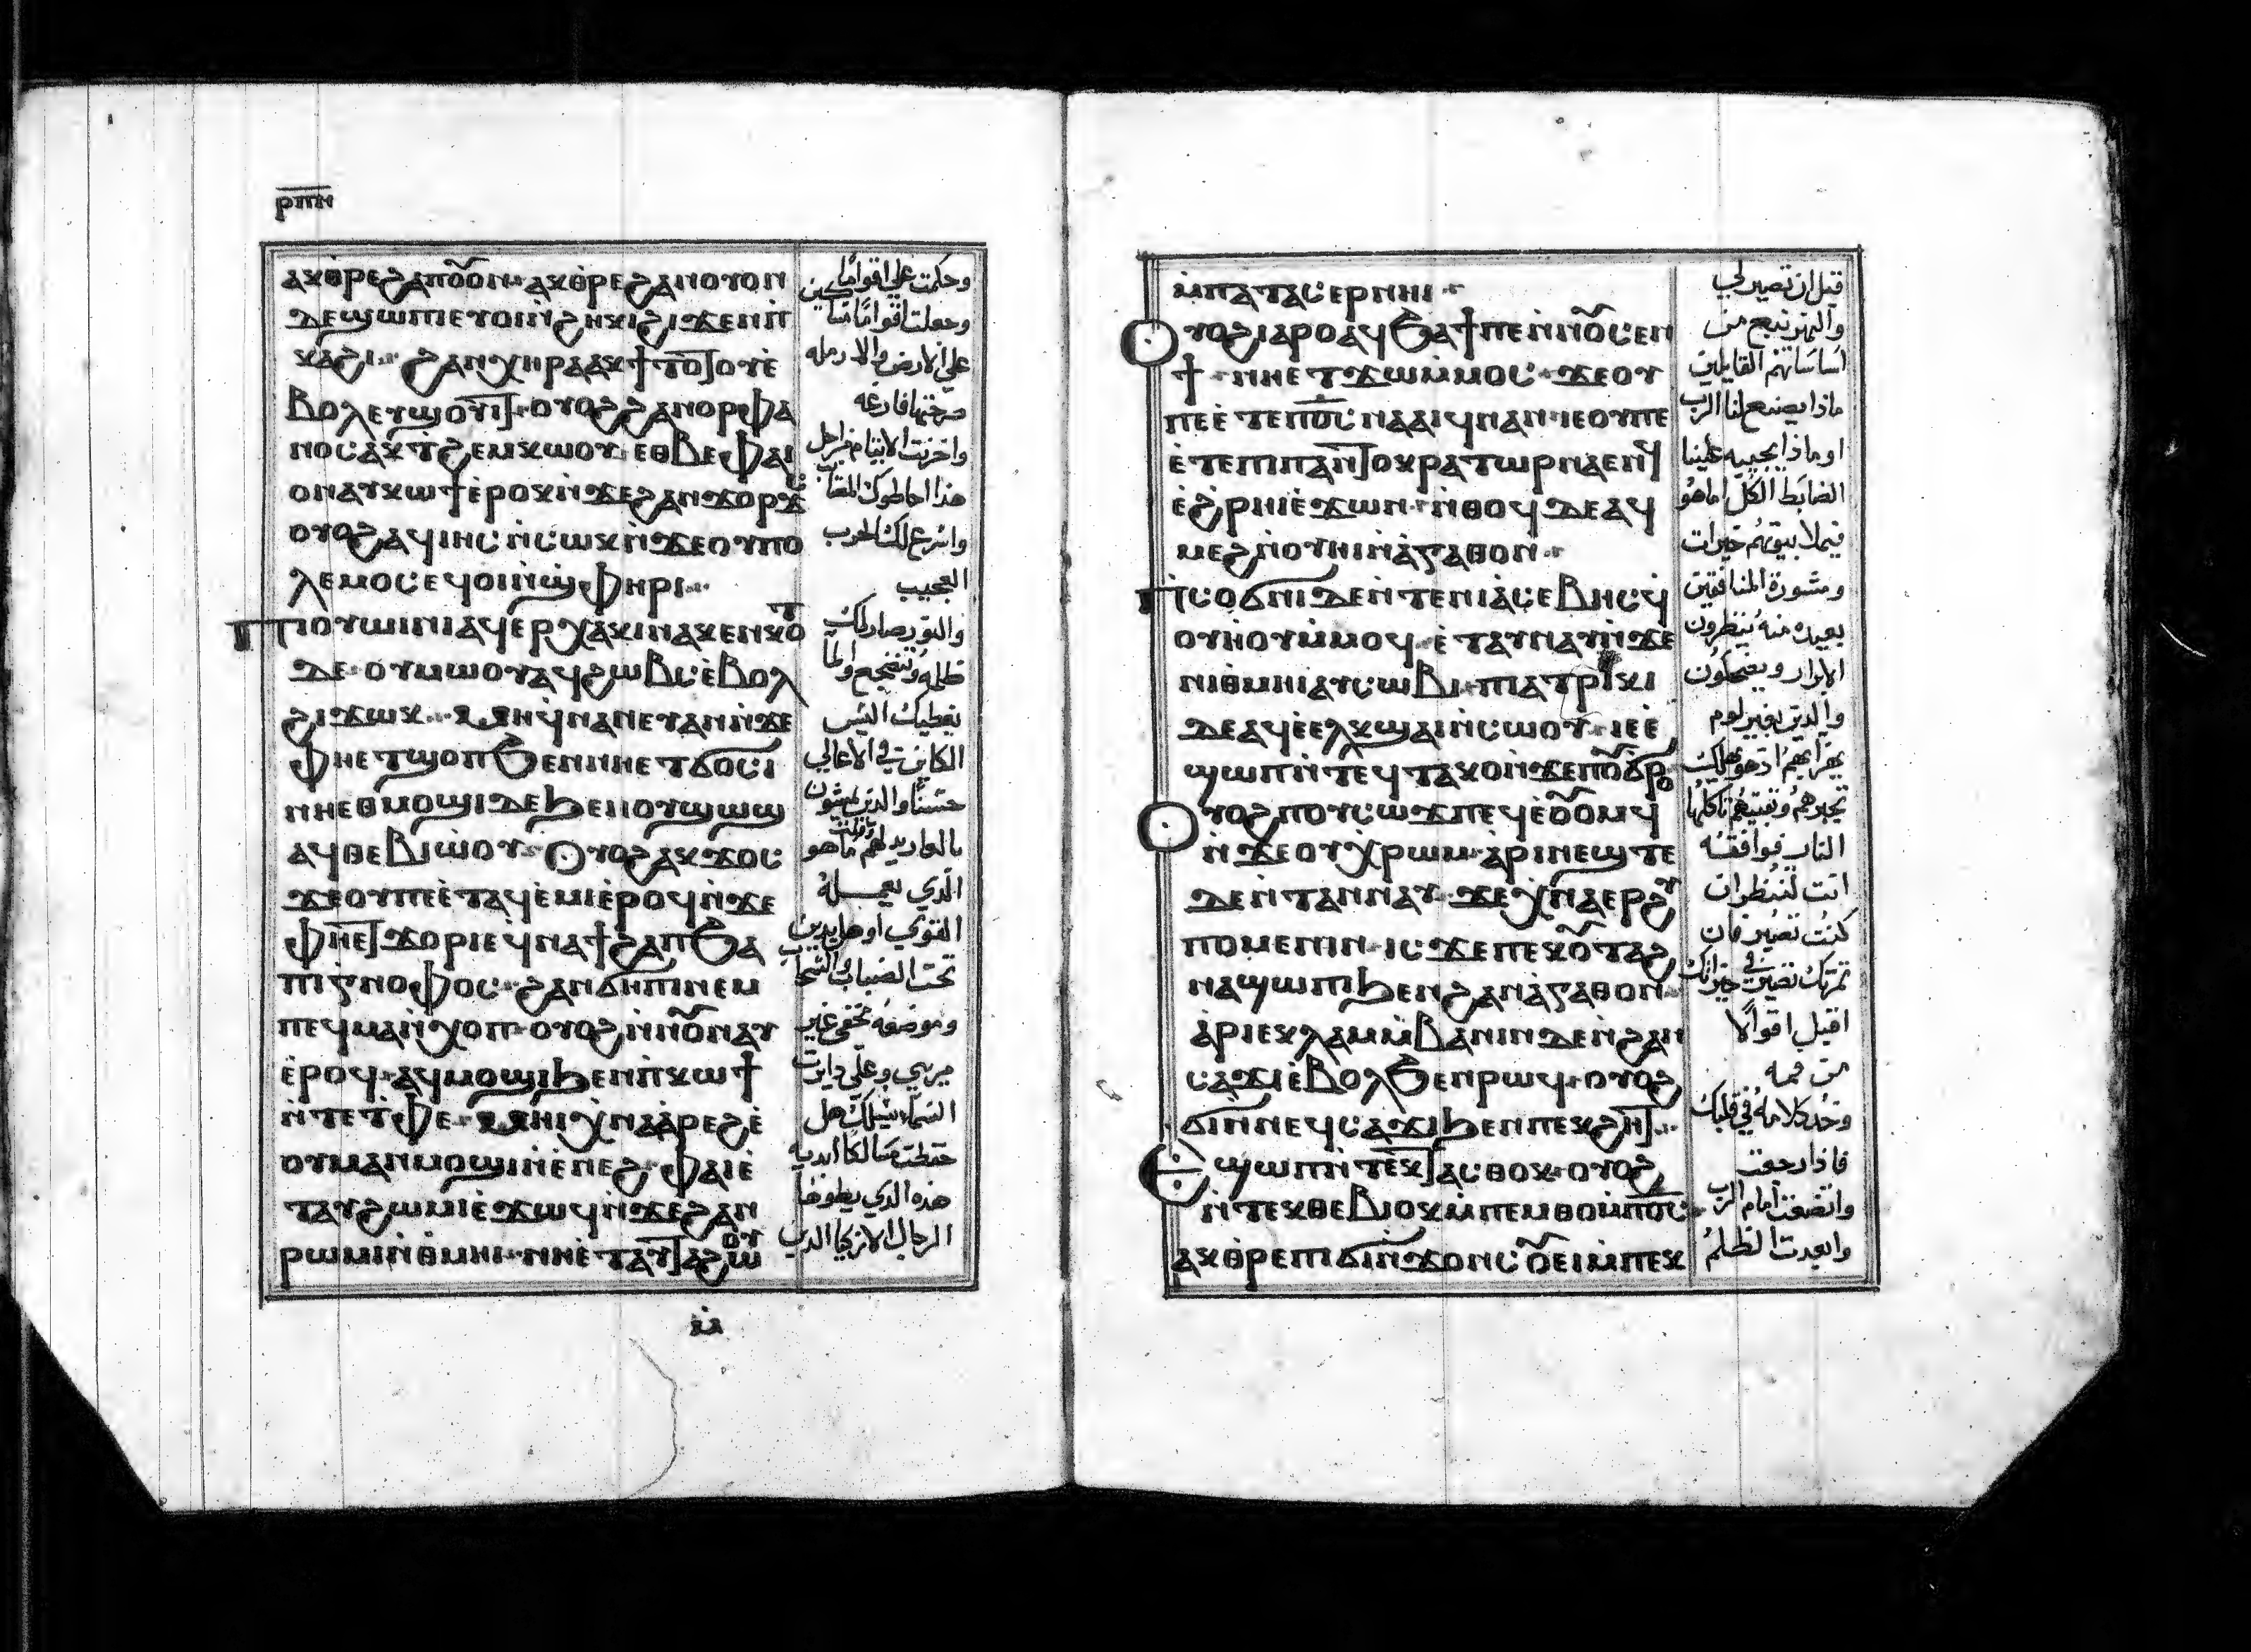 ⲣⲡⲏ
ⲁⲕⲑⲣⲉϩⲁⲛⲟ̅ⲟⲛ ⲁⲕⲑⲣⲉϩⲁⲛⲟⲩⲟⲛ
ⲇⲉϣⲱⲡⲓⲉⲩⲟⲓⲛ̀ϩⲏⲕⲓϩⲓϫⲉⲛⲡ̀
ⲕⲁϩⲓ ϩⲁⲛⲭⲏⲣⲁⲁⲕϯⲧⲟ̅ⲧⲟⲩⲉ̀
ⲃⲟⲗⲉⲩϣⲟⲩⲓⲧ ⲟⲩⲟϩϩⲁⲛⲟⲣⲫⲁ
ⲛⲟⲥⲁⲕⲧ̀ϩⲉⲙⲕⲱⲟⲩ ⲉⲑⲃⲉⲫⲁⲓ
ⲟⲛⲁⲩⲕⲱϯⲉ̀ⲣⲟⲕⲛ̀ϫⲉϩⲁⲛϫⲟⲣϫⲥ
ⲟⲩⲟϩⲁϥⲓⲏⲥⲛ̀ⲥⲱⲕⲛ̀ϫⲉⲟⲩⲡⲟ
ⲗⲉⲙⲟⲥⲉϥⲟⲓⲛ̀ϣⲫⲏⲣⲓ
ⲡⲓⲟⲩⲱⲓⲛⲓⲁϥⲉⲣⲭⲁⲕⲓⲛⲁⲕⲉⲛⲕⲟⲧ
ⲇⲉ ⲟⲩⲙⲱⲟⲩⲁϥϩⲱⲃⲥⲉ̀ⲃⲟⲗ
ϩⲓϫⲱⲕ ⲙⲏϥⲛⲁⲛⲉⲩⲁⲛⲛ̀ϫⲉ
ⲫⲏⲉⲧϣⲟⲡϧⲉⲛⲛⲏⲉⲧϭⲟⲥⲓ
ⲛⲏⲉⲑⲙⲟϣⲓⲇⲉϧⲉⲛⲟⲩϣⲱϣ
ⲁϥⲑⲉⲃⲓⲱ̀ⲟⲩ ⲟⲩⲟϩⲁⲕϫⲟⲥ
ϫⲉⲟⲩⲡⲉⲉ̀ⲧⲁϥⲉ̀ⲙⲓⲉ̀ⲣⲟϥⲛ̀ϫⲉ
ⲫⲏⲉⲧϫⲟⲣⲓⲉϥⲛⲁϯϩⲁⲡϧⲁ
ⲡⲓⲅⲛⲟⲫⲟⲥ ϩⲁⲛϭⲏⲡⲓⲛⲉⲙ
ⲡⲉϥⲙⲁⲛ̀ⲭⲟⲡ ⲟⲩⲟϩⲛ̀ⲛⲟ̅ⲛⲁⲩ
ⲉ̀ⲣⲟϥ ⲁϥⲙⲟϣⲓϧⲉⲛⲡ̀ⲕⲱϯ
ⲛ̀ⲧⲉⲧ̀ⲫⲉ ⲙⲏⲓⲭⲛⲁⲁ̀ⲣⲉϩⲉ̀
ⲟⲩⲙⲁⲛⲙⲟϣⲓⲛ̀ⲉ̀ⲛⲉϩ ⲫⲁⲓⲉ̀
ⲧⲁⲩϩⲱⲙⲓⲉ̀ϫⲱϥⲛ̀ϫⲉϩⲁⲛ
ⲣⲱⲙⲓⲛ̀ⲑⲙⲏⲓ ⲛⲏⲉ̀ⲧⲁⲩⲧⲁϩⲱⲟⲩ
ⲙ̀
وحكمت علي اقواما
وجعلت اقواما مساكين
علي الارض والارمله
صرختها فارغه
واخزيت الايتام من اجل
هذا احاطوك المقانب
واسرع لك الحرب
العجيب
والنور صار لك
ظلمه وتضجع ولما
يغطيك اليس
الكاين في الاعالي
حسنا والذين يمشون
بالعار يدلهم وقلت ما هو
الذي يعمله
القوي او هل يدين
تحت الضباب والسحاب
وموضعه مخفي غير
ميري وعلي دايرت
السما يشيلك هل
حفظت مسالكا ابديه
هذه الذي يطوفها
الرجال الازكيا الذين
ⲙ̀ⲡⲁⲧⲁⲥⲉⲣⲛⲏⲓ
ⲟⲩⲟϩⲓⲁⲣⲟⲁϥϧⲁϯⲡⲉⲛⲛ̀ⲛⲟ̅ⲥⲉⲛ
ϯ ⲛⲏⲉⲧϫⲱⲙ̀ⲙⲟⲥ ϫⲉⲟⲩ
ⲡⲉⲉ̀ⲧⲉⲡⲟ̅ⲥⲛⲁⲁⲓϥⲛⲁⲛ ⲓⲉⲟⲩⲡⲉ
ⲉ̀ⲧⲉⲡⲓⲡⲁⲛⲧⲟⲕⲣⲁⲧⲱⲣⲛⲁⲉⲛϥ
ⲉ̀ϩⲣⲏⲓⲉ̀ϫⲱⲛ ⲛ̀ⲑⲟϥⲇⲉⲁϥ
ⲙⲉϩⲛ̀ⲟⲩⲏⲓⲛ̀ⲁ̀ⲅⲁⲑⲟⲛ
ⲡⲓⲥⲟϭⲛⲓⲇⲉⲛ̀ⲧⲉⲛⲓⲁ̀ⲥⲉⲃⲏⲥϥ
ⲟⲩⲏ̀ⲟⲩⲙ̀ⲙⲟϥ ⲉ̀ⲧⲁⲩⲛⲁⲩⲛ̀ϫⲉ
ⲛⲓⲑⲙⲏⲓⲁⲩⲥⲱⲃⲓ ⲡⲓⲁⲧⲣⲓⲕⲓ
ⲇⲉⲁϥⲉ̀ⲉⲗⲕϣⲁⲓⲛ̀ⲥⲱⲟⲩ ⲓⲉⲉ̀
ϣⲱⲡⲛ̀ⲧⲉϥⲧⲁⲕⲟⲛ̀ϫⲉⲡⲟⲩϭⲣⲟ
ⲟⲩⲟϩⲡⲟⲩⲥⲱϫⲡⲉϥⲉ̀ⲟ̅ⲟⲙϥ
ⲛ̀ϫⲉⲟⲩⲭⲣⲱⲙ ⲁ̀ⲣⲓⲛⲉϣⲧⲉ
ⲇⲉⲛ̀ⲧⲁⲛⲛⲁⲩ ϫⲉⲭⲛⲁⲉⲣϩⲩ
ⲡⲟⲙⲉⲛⲓⲛ ⲓⲥϫⲉⲡⲉⲕⲟ̅ⲩⲧⲁϩ
ⲛⲁϣⲱⲡⲓϧⲉⲛϩⲁⲛⲁ̀ⲅⲁⲑⲟⲛ
ⲁ̀ⲣⲓⲉⲕⲗⲁⲙⲙ̀ⲃⲁⲛⲓⲛⲇⲉⲛ̀ϩⲁⲛ
ⲥⲁϫⲓⲉ̀ⲃⲟⲗϧⲉⲛⲣⲱϥ ⲟⲩⲟϩ
ϭⲓⲛ̀ⲛⲉϥⲥⲁϫⲓϧⲉⲛⲡⲉⲕϩⲏⲧ
ⲉϣⲱⲡⲛ̀ⲧⲉⲕⲧⲁⲥⲑⲟⲕ ⲟⲩⲟϩ
ⲛ̀ⲧⲉⲕⲑⲉⲃⲓⲟⲕⲙ̀ⲡⲉⲙⲑⲟⲙ̀ⲡⲟ̅ⲥ
ⲁⲕⲑⲣⲉⲡⲓϭⲓⲛ̀ϫⲟⲛⲥⲟ̅ⲉⲓⲙ̀ⲡⲉⲕ
قبل ان تصير لي
والنهر نبع من
اساساتهم القايلين
ماذا يصنع لنا الرب
او ماذا يجيبه علينا
الضابط الكل اما هو
فيملا بيوتهم خيرات
ومشورة المنافقين
بعيده منه ينظرون
الابرار ويضحكون
والذين بغير لوم
يهزا بهم اذ هو هلك
تجبرهم وبقيتهم تاكلها
النار فوافقه
انت لننظر ان
كنت تصير فان
ثمرتك تصير في خيراتك
اقبل اقوالا
من فمه
وخد كلامه في قلبك
فاذا رجعت
واتضعت امام الرب
وابعدت الظلم